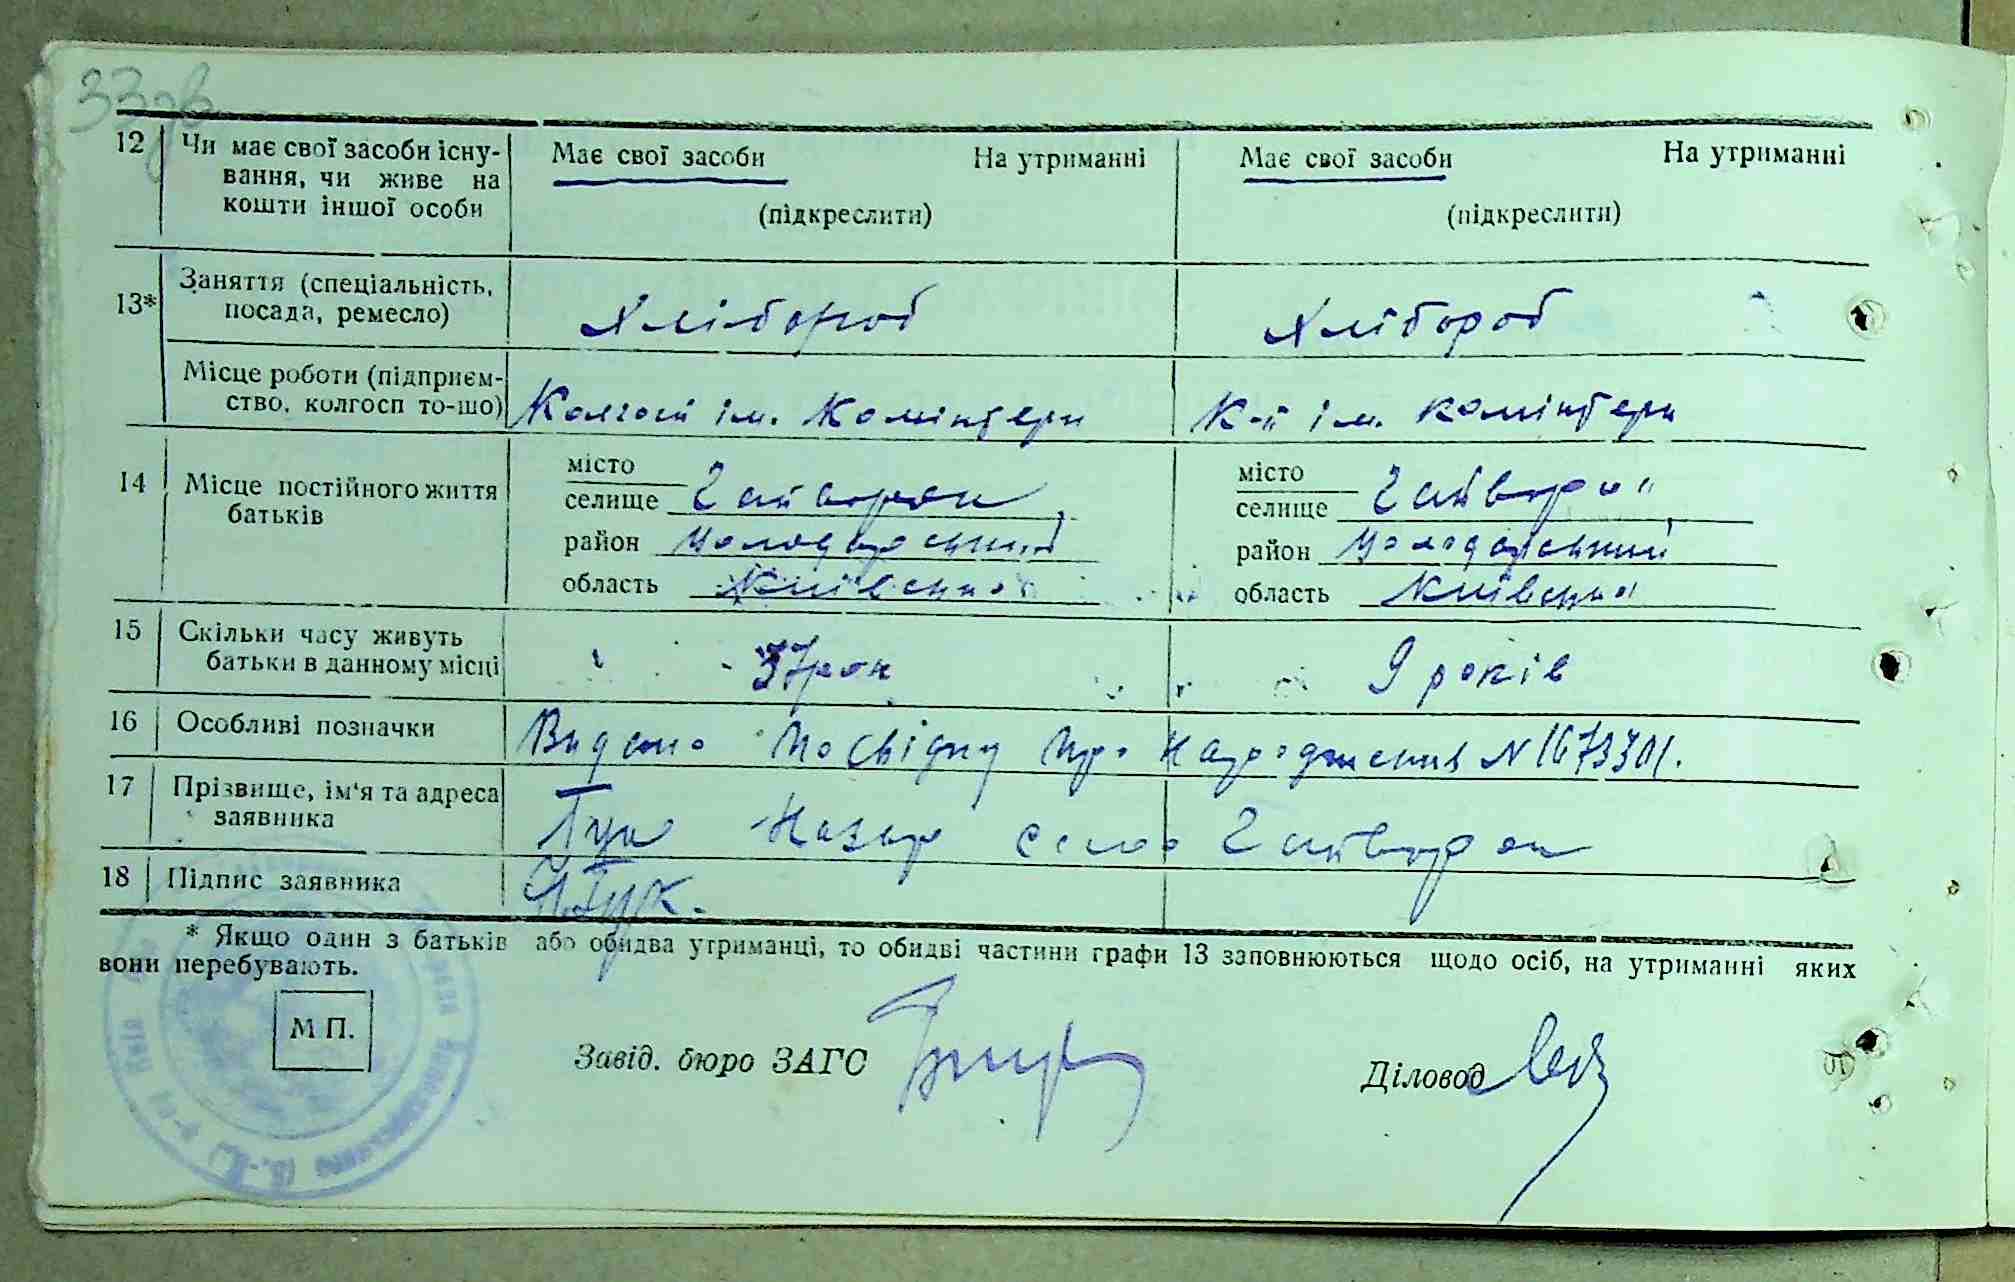 33 зв
12 Чи має свої засоби існу- Має свої засоби На утриманні Має свої засоби На утриманні
вання, чи живе на
кошти іншої особи (підкреслити) (підкреслити)
13* Заняття (спеціальність,
посада, ремесло) Хлібороб Хлібороб
Місце роботи (підприєм-
ство, колгосп то-що) Колгосп ім. Комінтерн К-п ім. Комінтерн
14 Місце постійного життя
батьків
місто місто
селище Гайворон, селище Гайворон,
район Володарський район Володарський
область Київська область Київська
15 Скільки часу живуть
батьки в данному місці 37 рок 9 років
16 Особливі позначки Видано посвідку про народження N 1673301.
17 Прізвище, ім'я та адреса
заявника Гук Назар село Гайворон
18 Підпис заявника Н.Гук.
* Якщо один з батьків або обидва утриманці, то обидві частини графи 13 заповнюються щодо осіб, на утриманні яких
вони перебувають.
М П.
Завід. бюро ЗАГС
Діловод